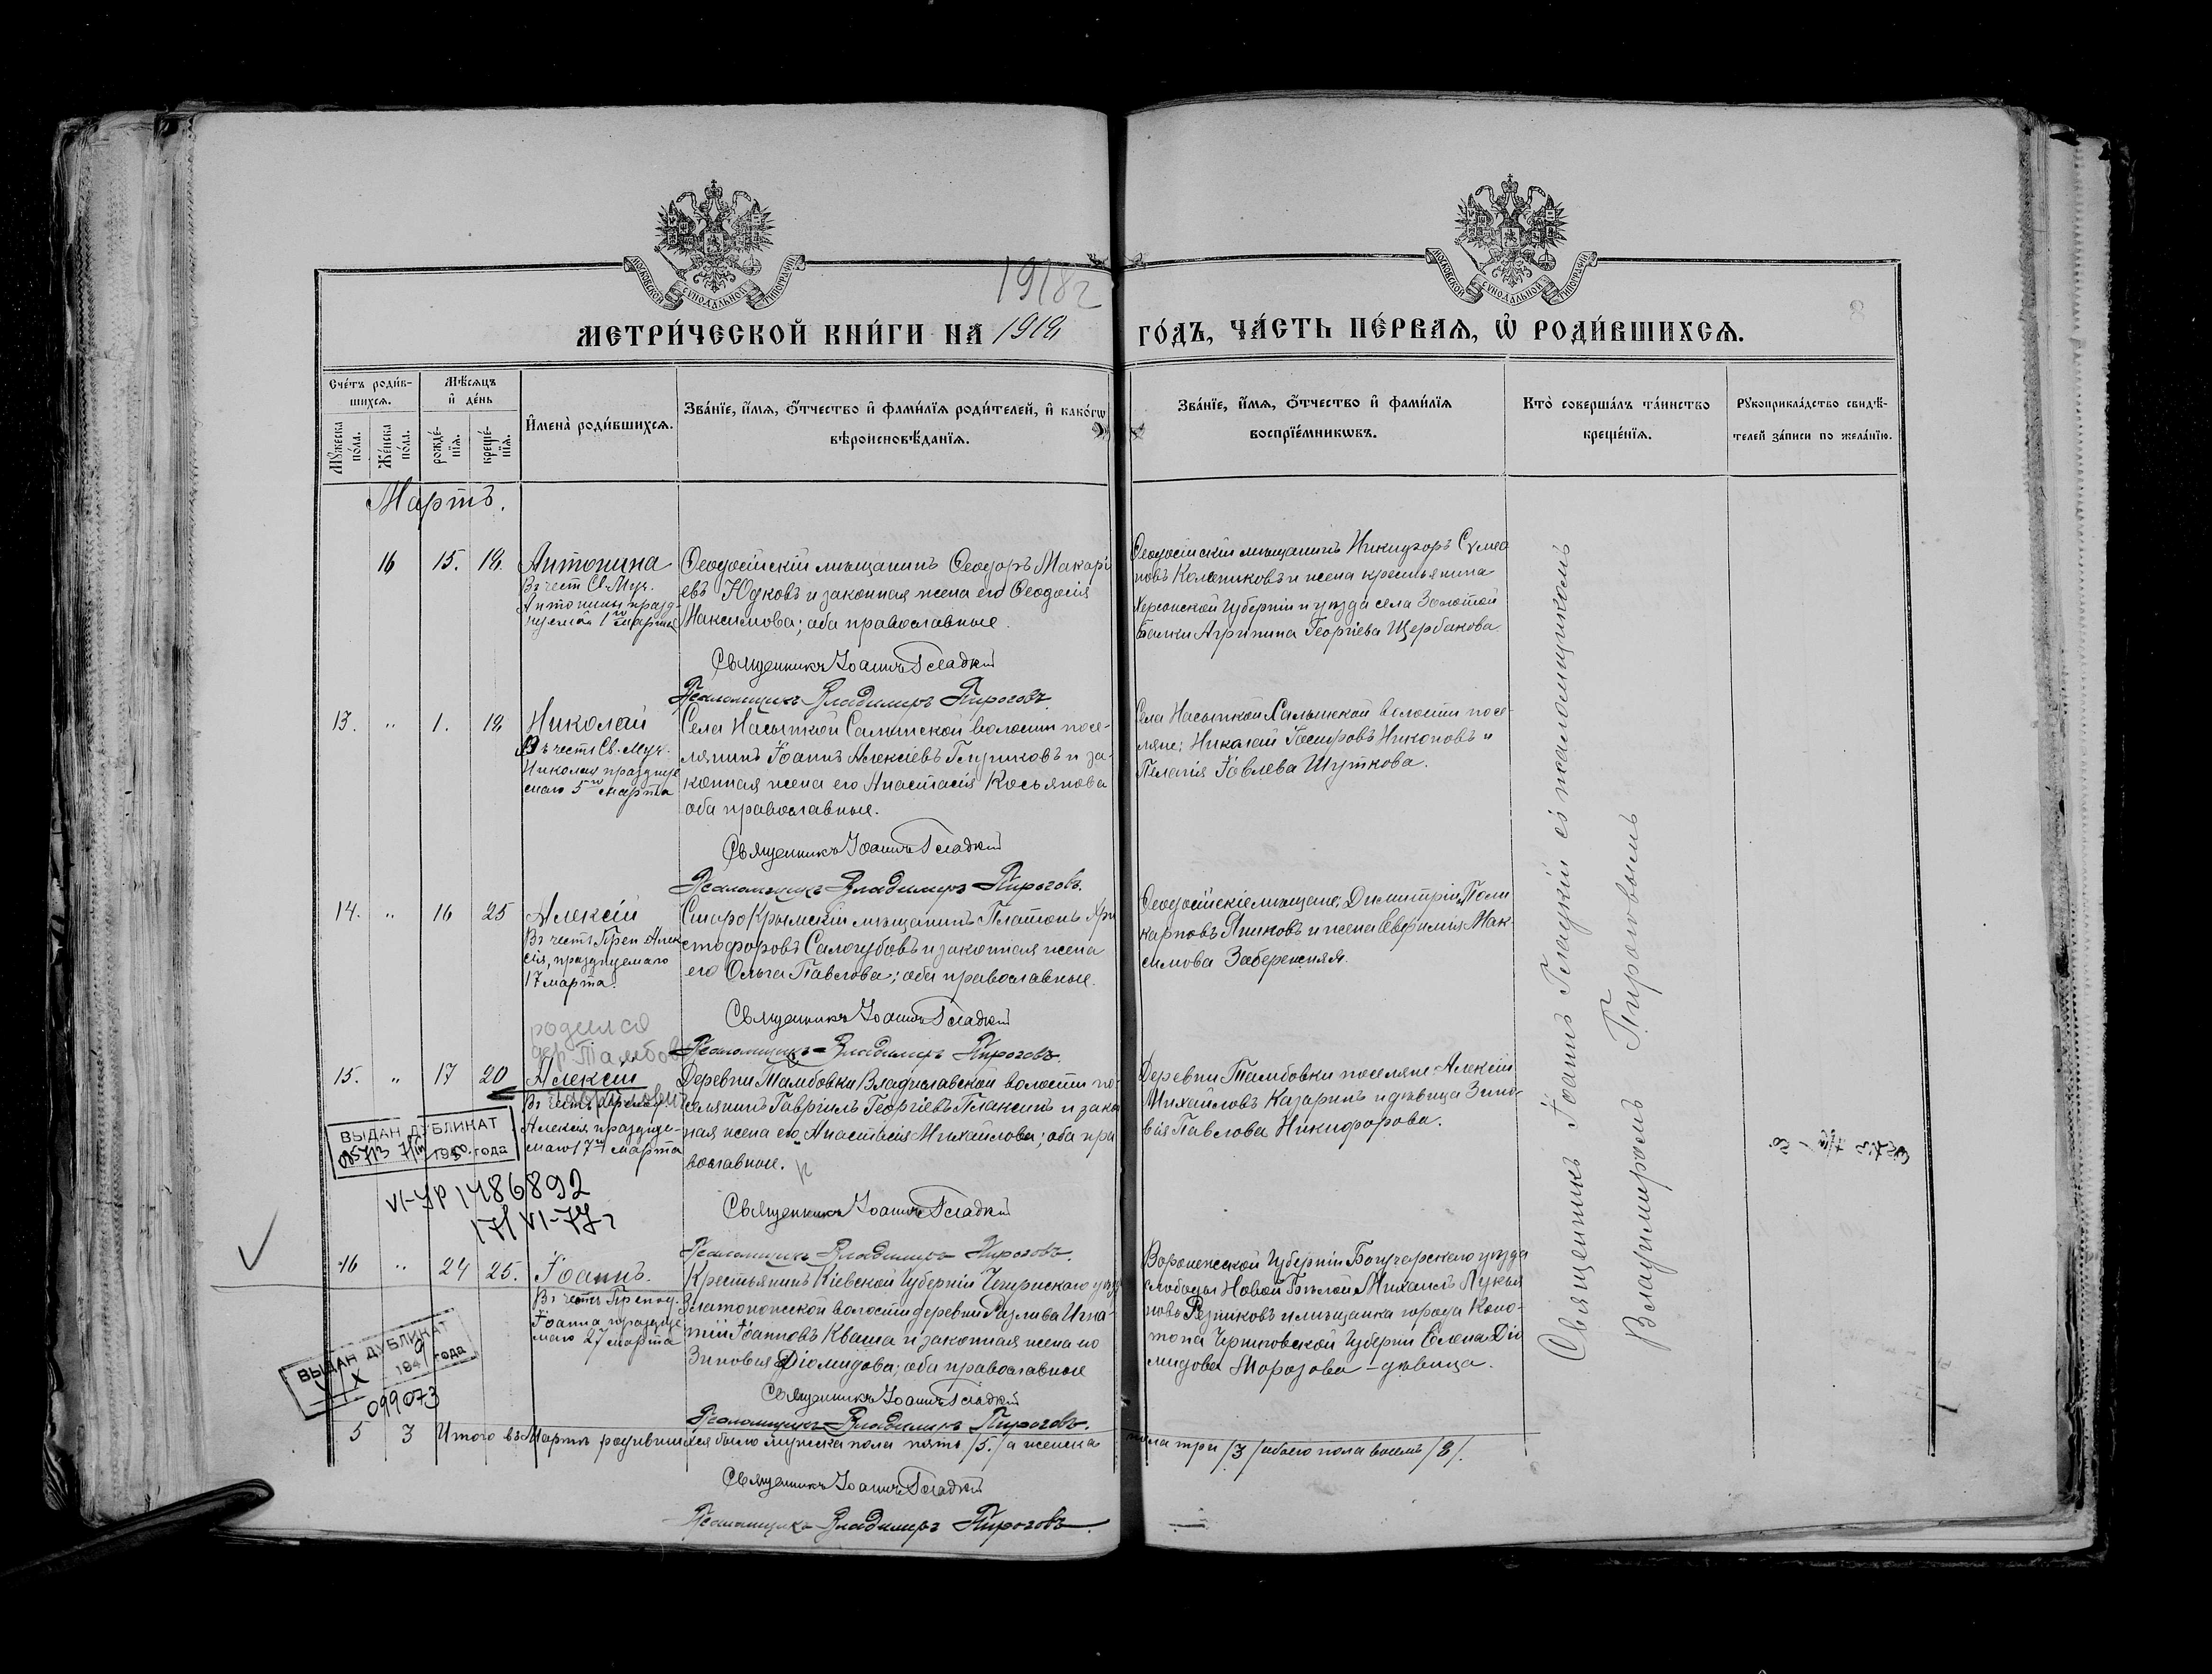 МОСКОВСКОЙ СУНОДАЛЬНОЙ ТИПОГРАФІИ
МОСКОВСКОЙ СУНОДАЛЬНОЙ ТИПОГРАФІИ
1918 г
МЕТРИ́ЧЕСКОЙ КНИ́ГИ НА 1918
ГО́ДЪ, ЧА́СТЬ ПЕ́РВАЯ, Ѡ҆ РОДИ́ВШИХСЯ.
Сче́тъ роди́в-
шихся.
Мѣ́сяцъ
и҆ де́нь
Мꙋ́жеска по́ла.
Же́нска по́ла.
рожде́-
нїя.
креще́-
нїя.
И҆мена̀ роди́вшихся.
Зва́нїе, и҆́мя, ѻ҆́тчество и҆ фами́лїя роди́телей, и҆ како́гѡ
вѣроисповѣ́данїя.
Зва́нїе, и҆́мя, ѻ҆́тчество и҆ фами́лїя
воспрїе́мникѡвъ.
Кто̀ соверша́лъ та́инство
креще́нїя.
Рꙋкоприкла́дство свидѣ́-
телей за́писи по жела́нїю.
Мартъ.
16 15. 18. Антонина
Въ чест Св. Муч.
Антонины празд-
нуемая 1го марта
Ѳеодосійскій мѣщанинъ Ѳеодоръ Макарі
евъ Юдковъ и законная жена его Ѳеодосія
Максимова; оба православные.
Священникъ Іоаннъ Гладкій
Псаломщикъ Владимиръ Пироговъ.
Ѳеодосійскій мѣщанинъ Никифоръ Сумео
новъ Колѣсниковъ и жена крестьянина
Херсонской Губерніи и уѣзда села Золотой
Балки Агрипина Георгіева Щербакова.
13. " 1. 18 Николай
Въ честь Св. Муч.
Николая праздну
емаго 5го марта
Села Насыпкой Салынской волости посе-
лянинъ Іоаннъ Алексіевъ Глушковъ и за-
конная жена его Анастасія Косьянова
оба православные.
Священникъ Іоаннъ Гладкій
Псаломщикъ Владимиръ Пироговъ.
Села Насыпкой Салынской волости посе-
ляне: Николай Никоновъ и
Пелагія Іовлева Шуткова.
14. " 16 25 Алексій
Въ честь Преп Алек
сія, празднуемаго
17 марта.
Старо Крымскій мѣщанинъ Платонъ Хри
стофоровъ Салогубовъ и законная жена
его Ольга Павлова; оба православные.
Священникъ Іоаннъ Гладкій
Псаломщикъ Владимиръ Пироговъ.
Ѳеодосійскіе мѣщане: Димитрій Поли
карповъ и жена Евфимія Мак-
симова Забережняя.
родился
дер. Тамбов
15. " 17 20 Алексій
Гаврилович
Въ честь
Алексія, праздную-
маго 17го марта
Деревни Тамбовки Владиславской волости по-
селянинъ Гавріилъ Георгіевъ Плаксинъ и зако
ная жена его Анастасія Михайлова; оба пра
вославные.
Священникъ Іоаннъ Гладкій
Псаломщикъ Владимиръ Пироговъ.
Деревни Тамбовки поселяне Алексій
Михайловъ Казаринъ и дѣвица Зино-
вія Павлова Никифорова.
ВЫДАН ДУБЛИКАТ
1950 года
VI-УР 1486892
17/VI-77 г
16 " 24 25. Іоаннъ.
Въ честь Препод.
Іоанна празднуе
маго 27 марта
Крестьянинъ Кіевской Губерніи Чигринскаго уѣзд
Златопожской волости деревни Разлива Игна-
тій Іоанновъ Кваша и законная жена его
Зиновія Діомидова; оба православные
Священникъ Іоаннъ Гладкій
Псаломщикъ Владимиръ Пироговъ.
Воронежской Губерніи Богучарскаго уѣзда
слободы Новой Бѣлой Михаилъ Лукья
новъ Рѣзниковъ и мѣщанка города Коно-
топа Черниговской Губерніи Елена Діо
мидова Морозова - дѣвица.
ВЫДАН ДУБЛИКАТ
194 года
099073
5 3 Итого въ Мартѣ родившихся было мужска пола пять /5./ а женска
пола три /3/ обоего пола восемь /8/.
Священникъ Іоаннъ Гладкій
Псаломщикъ Владимиръ Пироговъ.
Священникъ Іоаннъ Гладкій съ псаломщикомъ
Владимиромъ Пироговымъ